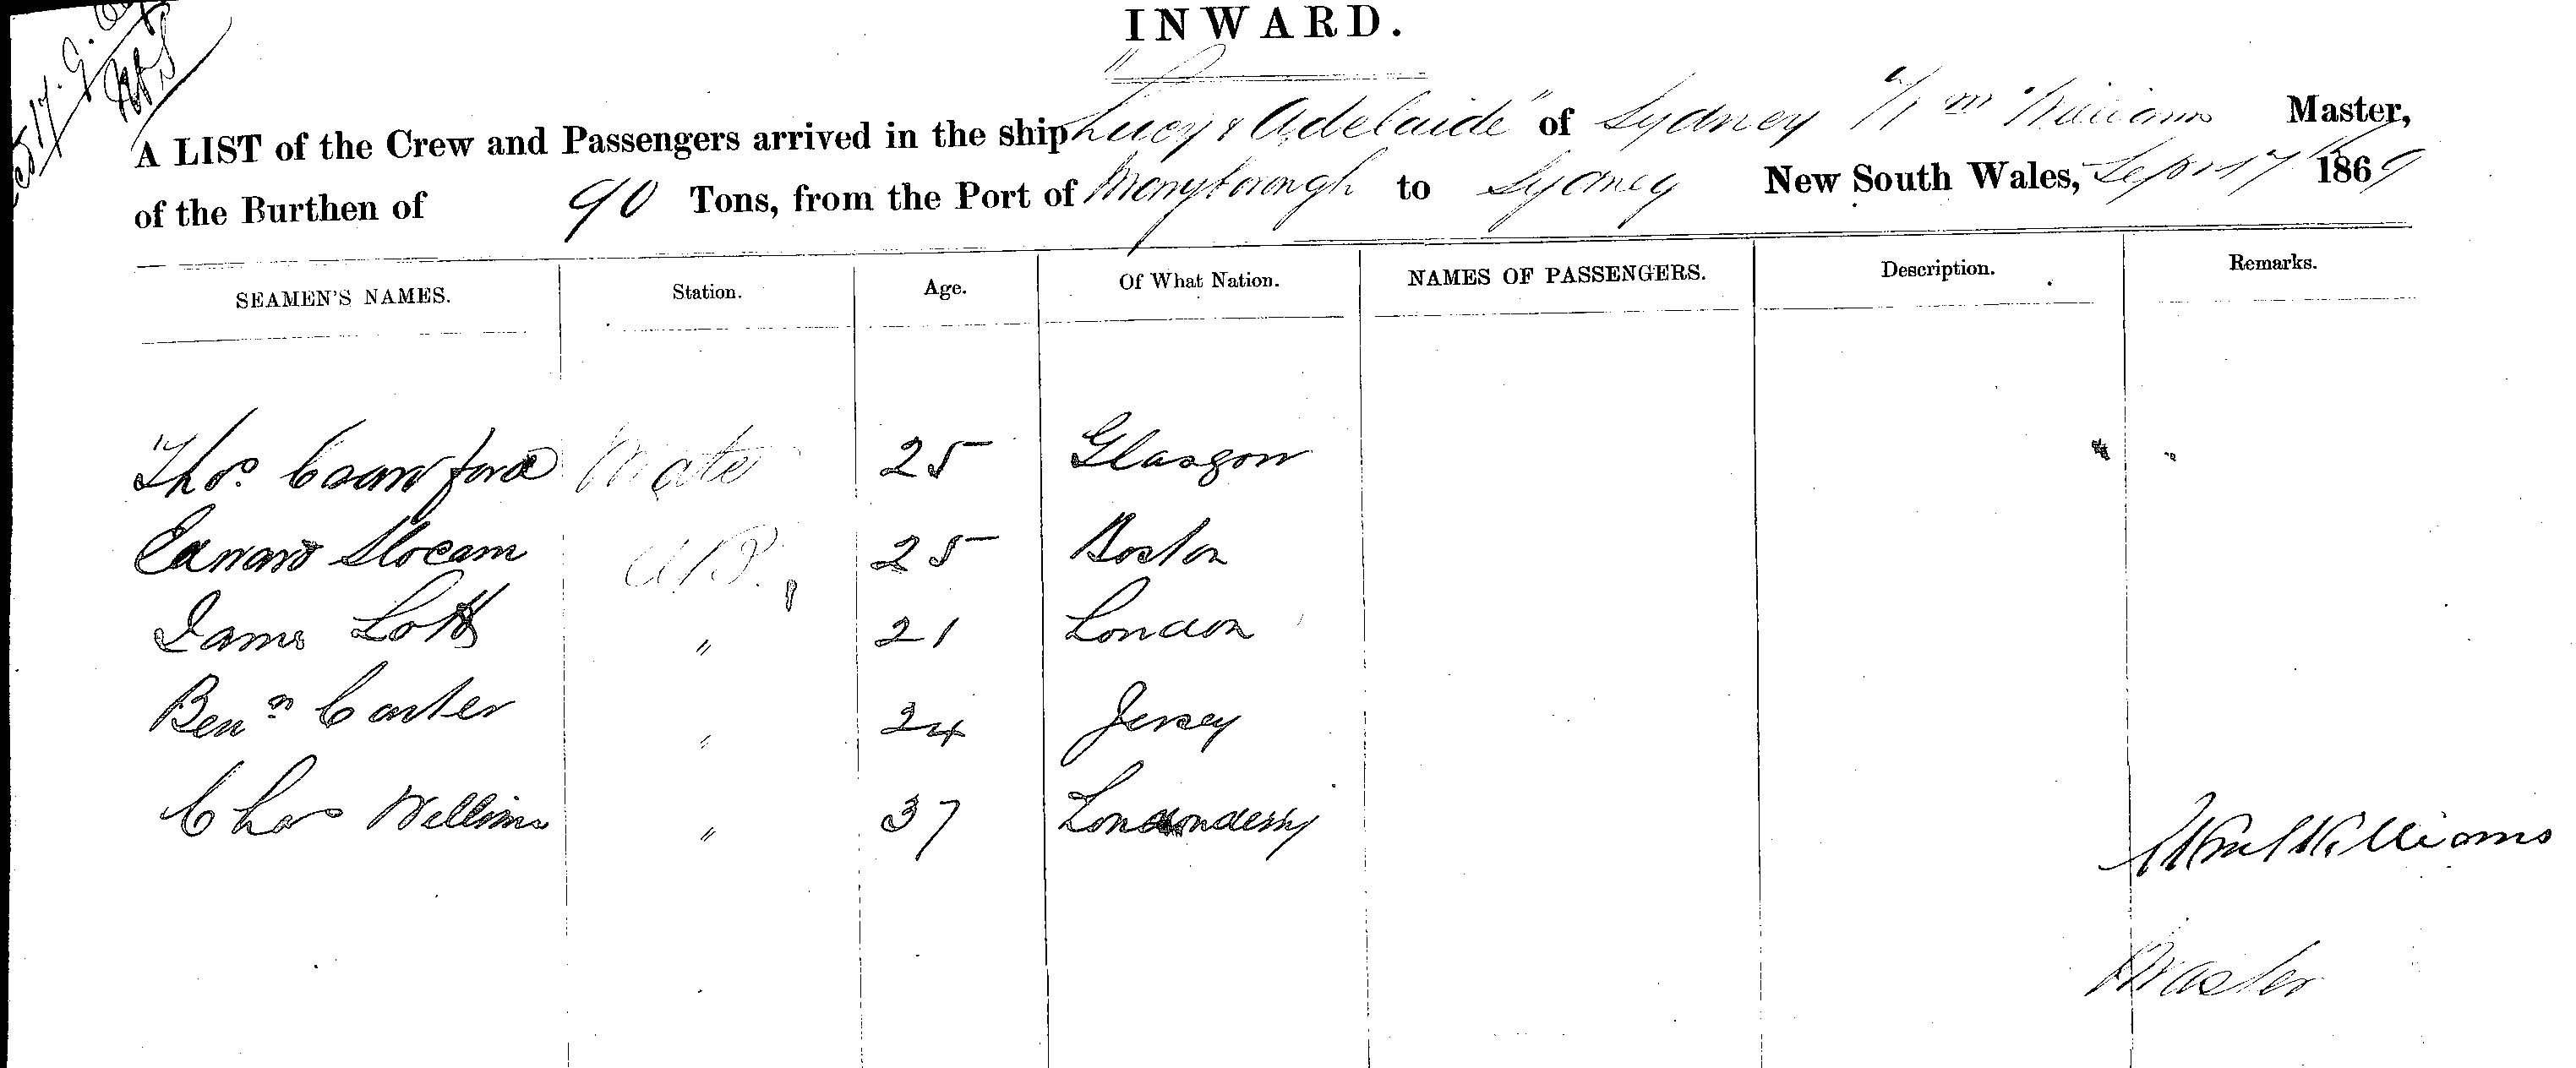 INWARD.
A LIST of the Crew and Passengers arrived in the ship "Lucy & Adelaide" of Sydney Wm Williams Master,
of the Burthen of 90 Tons, from the Port of Maryborough to Sydney New South Wales, Sept 17 1869
SEAMEN'S NAMES. Station. Age. Of What Nation. NAMES OF PASSENGERS. Description. Remarks.
Thos Crawford Mate 25 Glasgow
Edward Slocam A.B. 25 Boston
James Lott " 21 London
Benn Carter " 24 Jersey
Chas Williams " 37 Londonderry
Wm Williams
Master